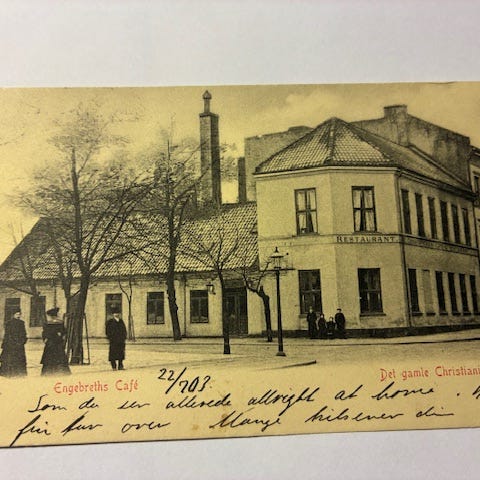 RESTAURANT
Engebreths Café
22/7 03.
Det gamle Christian
Som du ser allerede allright at home.
fin tur over Mange hilsener din